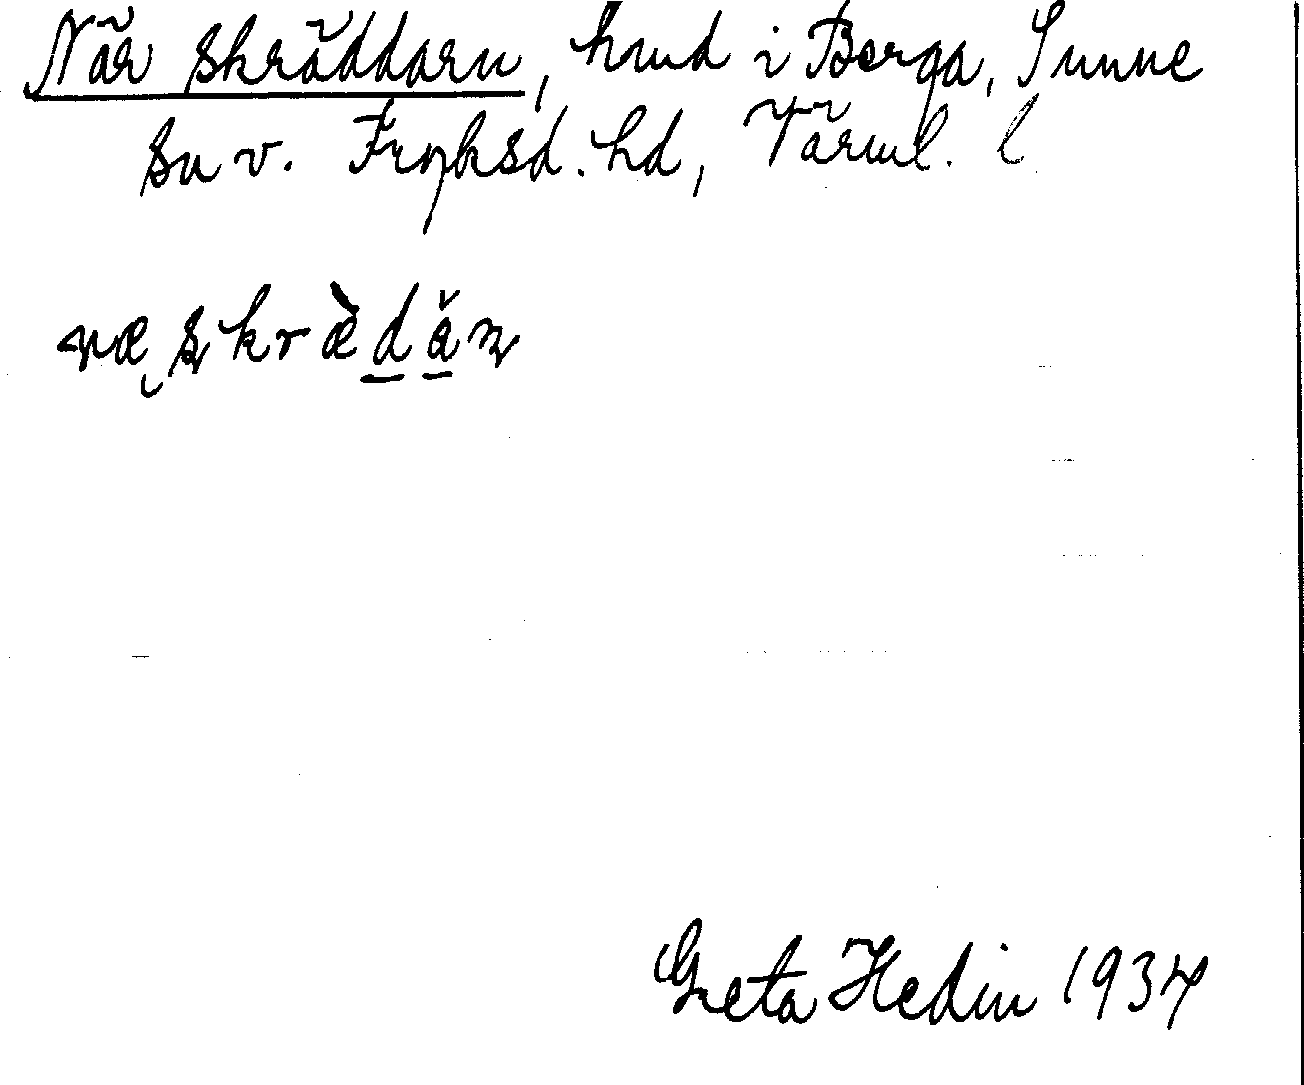 När skräddarn, hmd i Berga, Sunne
sn v. Fryksd. hd, Värml. l
næ skræ̀dăn
Greta Hedin 1934